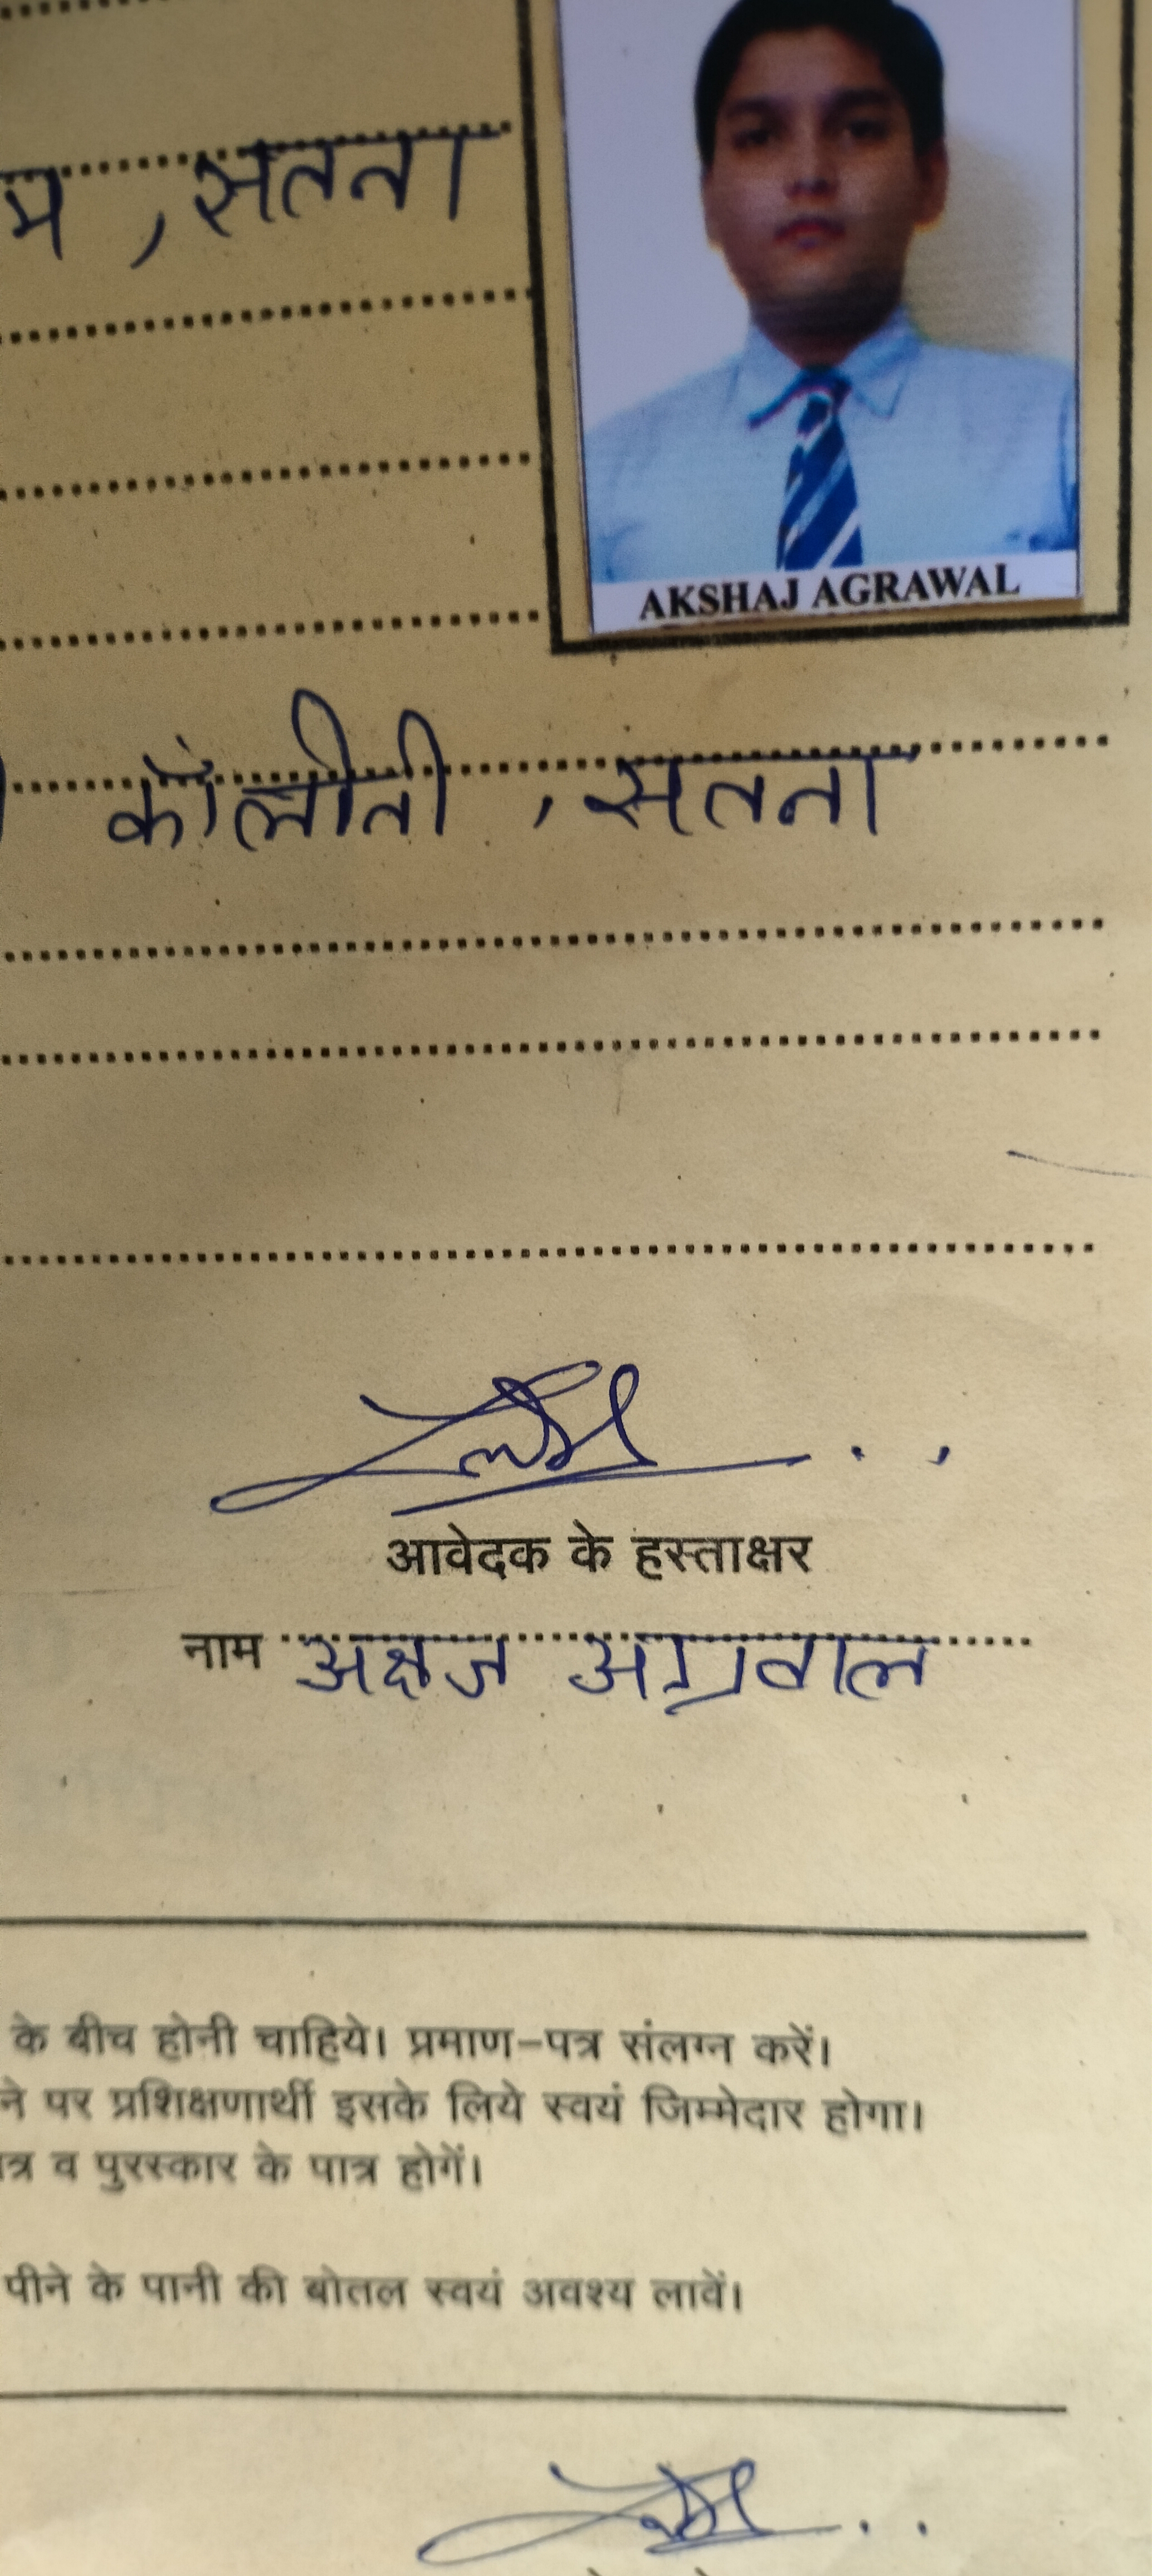 म, सतना
AKSHAJ AGRAWAL
कॉलोनी, सतना
आवेदक के हस्ताक्षर
नाम अक्षज अग्रवाल
के बीच होनी चाहिये। प्रमाण-पत्र संलग्न करें।
ने पर प्रशिक्षणार्थी इसके लिये स्वयं जिम्मेदार होगा।
त्र व पुरस्कार के पात्र होगें।
पीने के पानी की बोतल स्वयं अवश्य लावें।